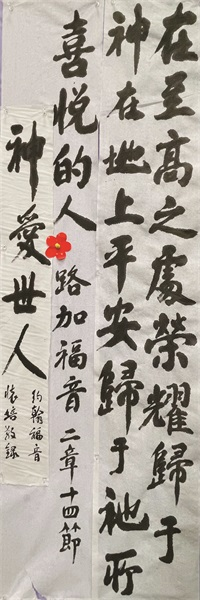 在至高之處榮耀歸于
神在地上平安歸于祂所
喜悅的人 路加福音二章十四節
神愛世人
約翰福音
敬錄